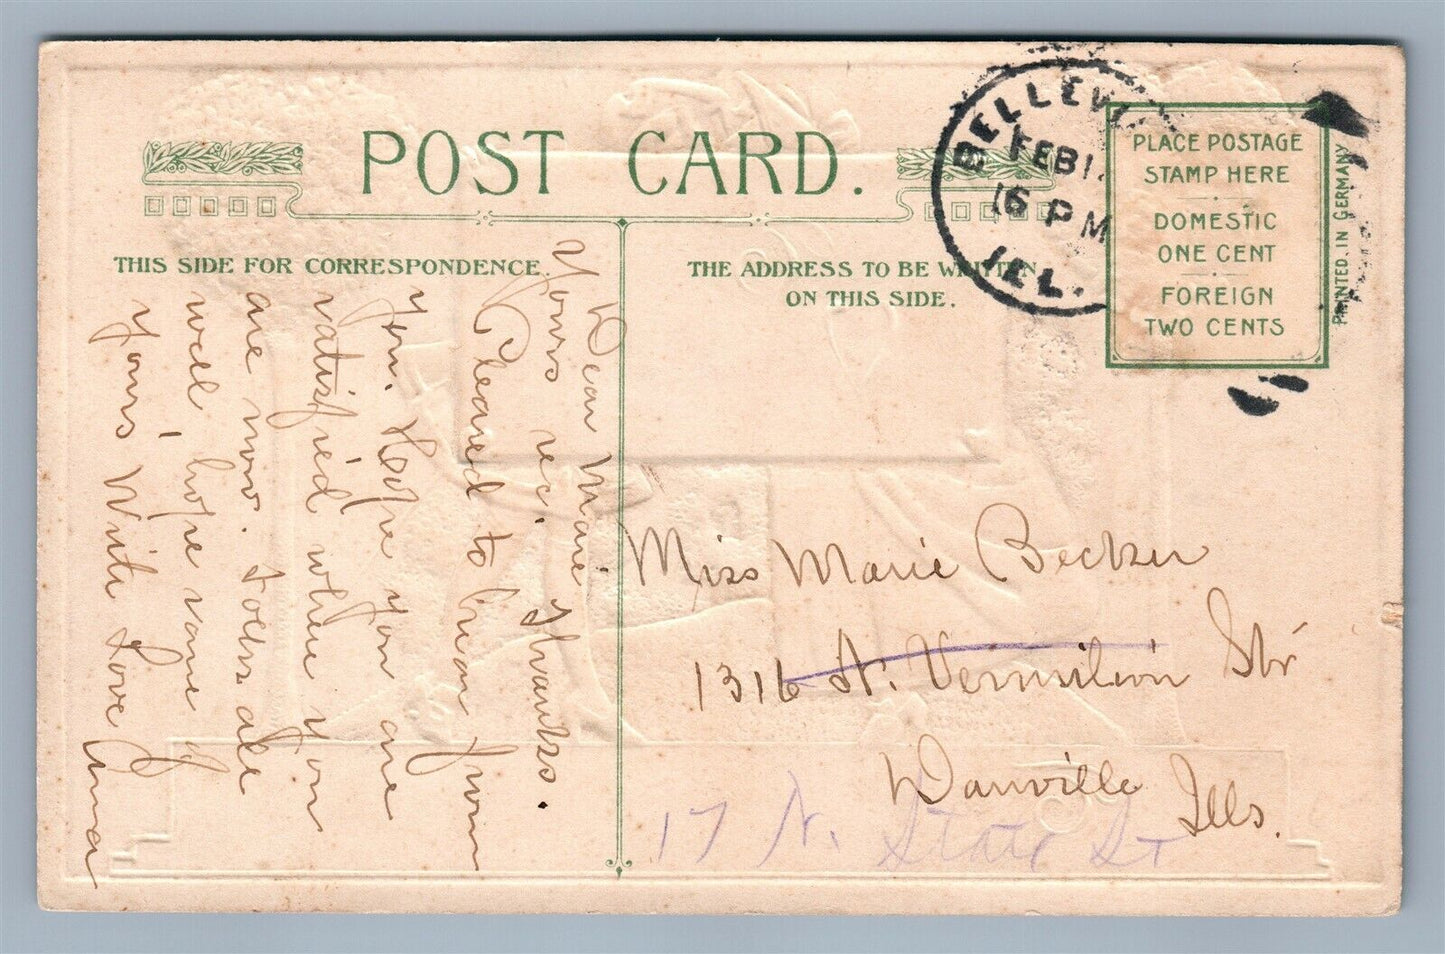 POST CARD.
THIS SIDE FOR CORRESPONDENCE.
THE ADDRESS TO BE WRITTEN
ON THIS SIDE.
PLACE POSTAGE
STAMP HERE
DOMESTIC
ONE CENT
FOREIGN
TWO CENTS
PRINTED IN GERMANY
BELLEVI
FEB 1
6 PM
ILL.
Dear Marie
Yours rec. Thanks.
Pleased to hear from
you. Hope you are
satisfied where you
are now. Folks all
well, hope same of
yours With Love Anna
Miss Marie Becker
1316 N. Vermilion Str
Danville Ills.
17 N. State St